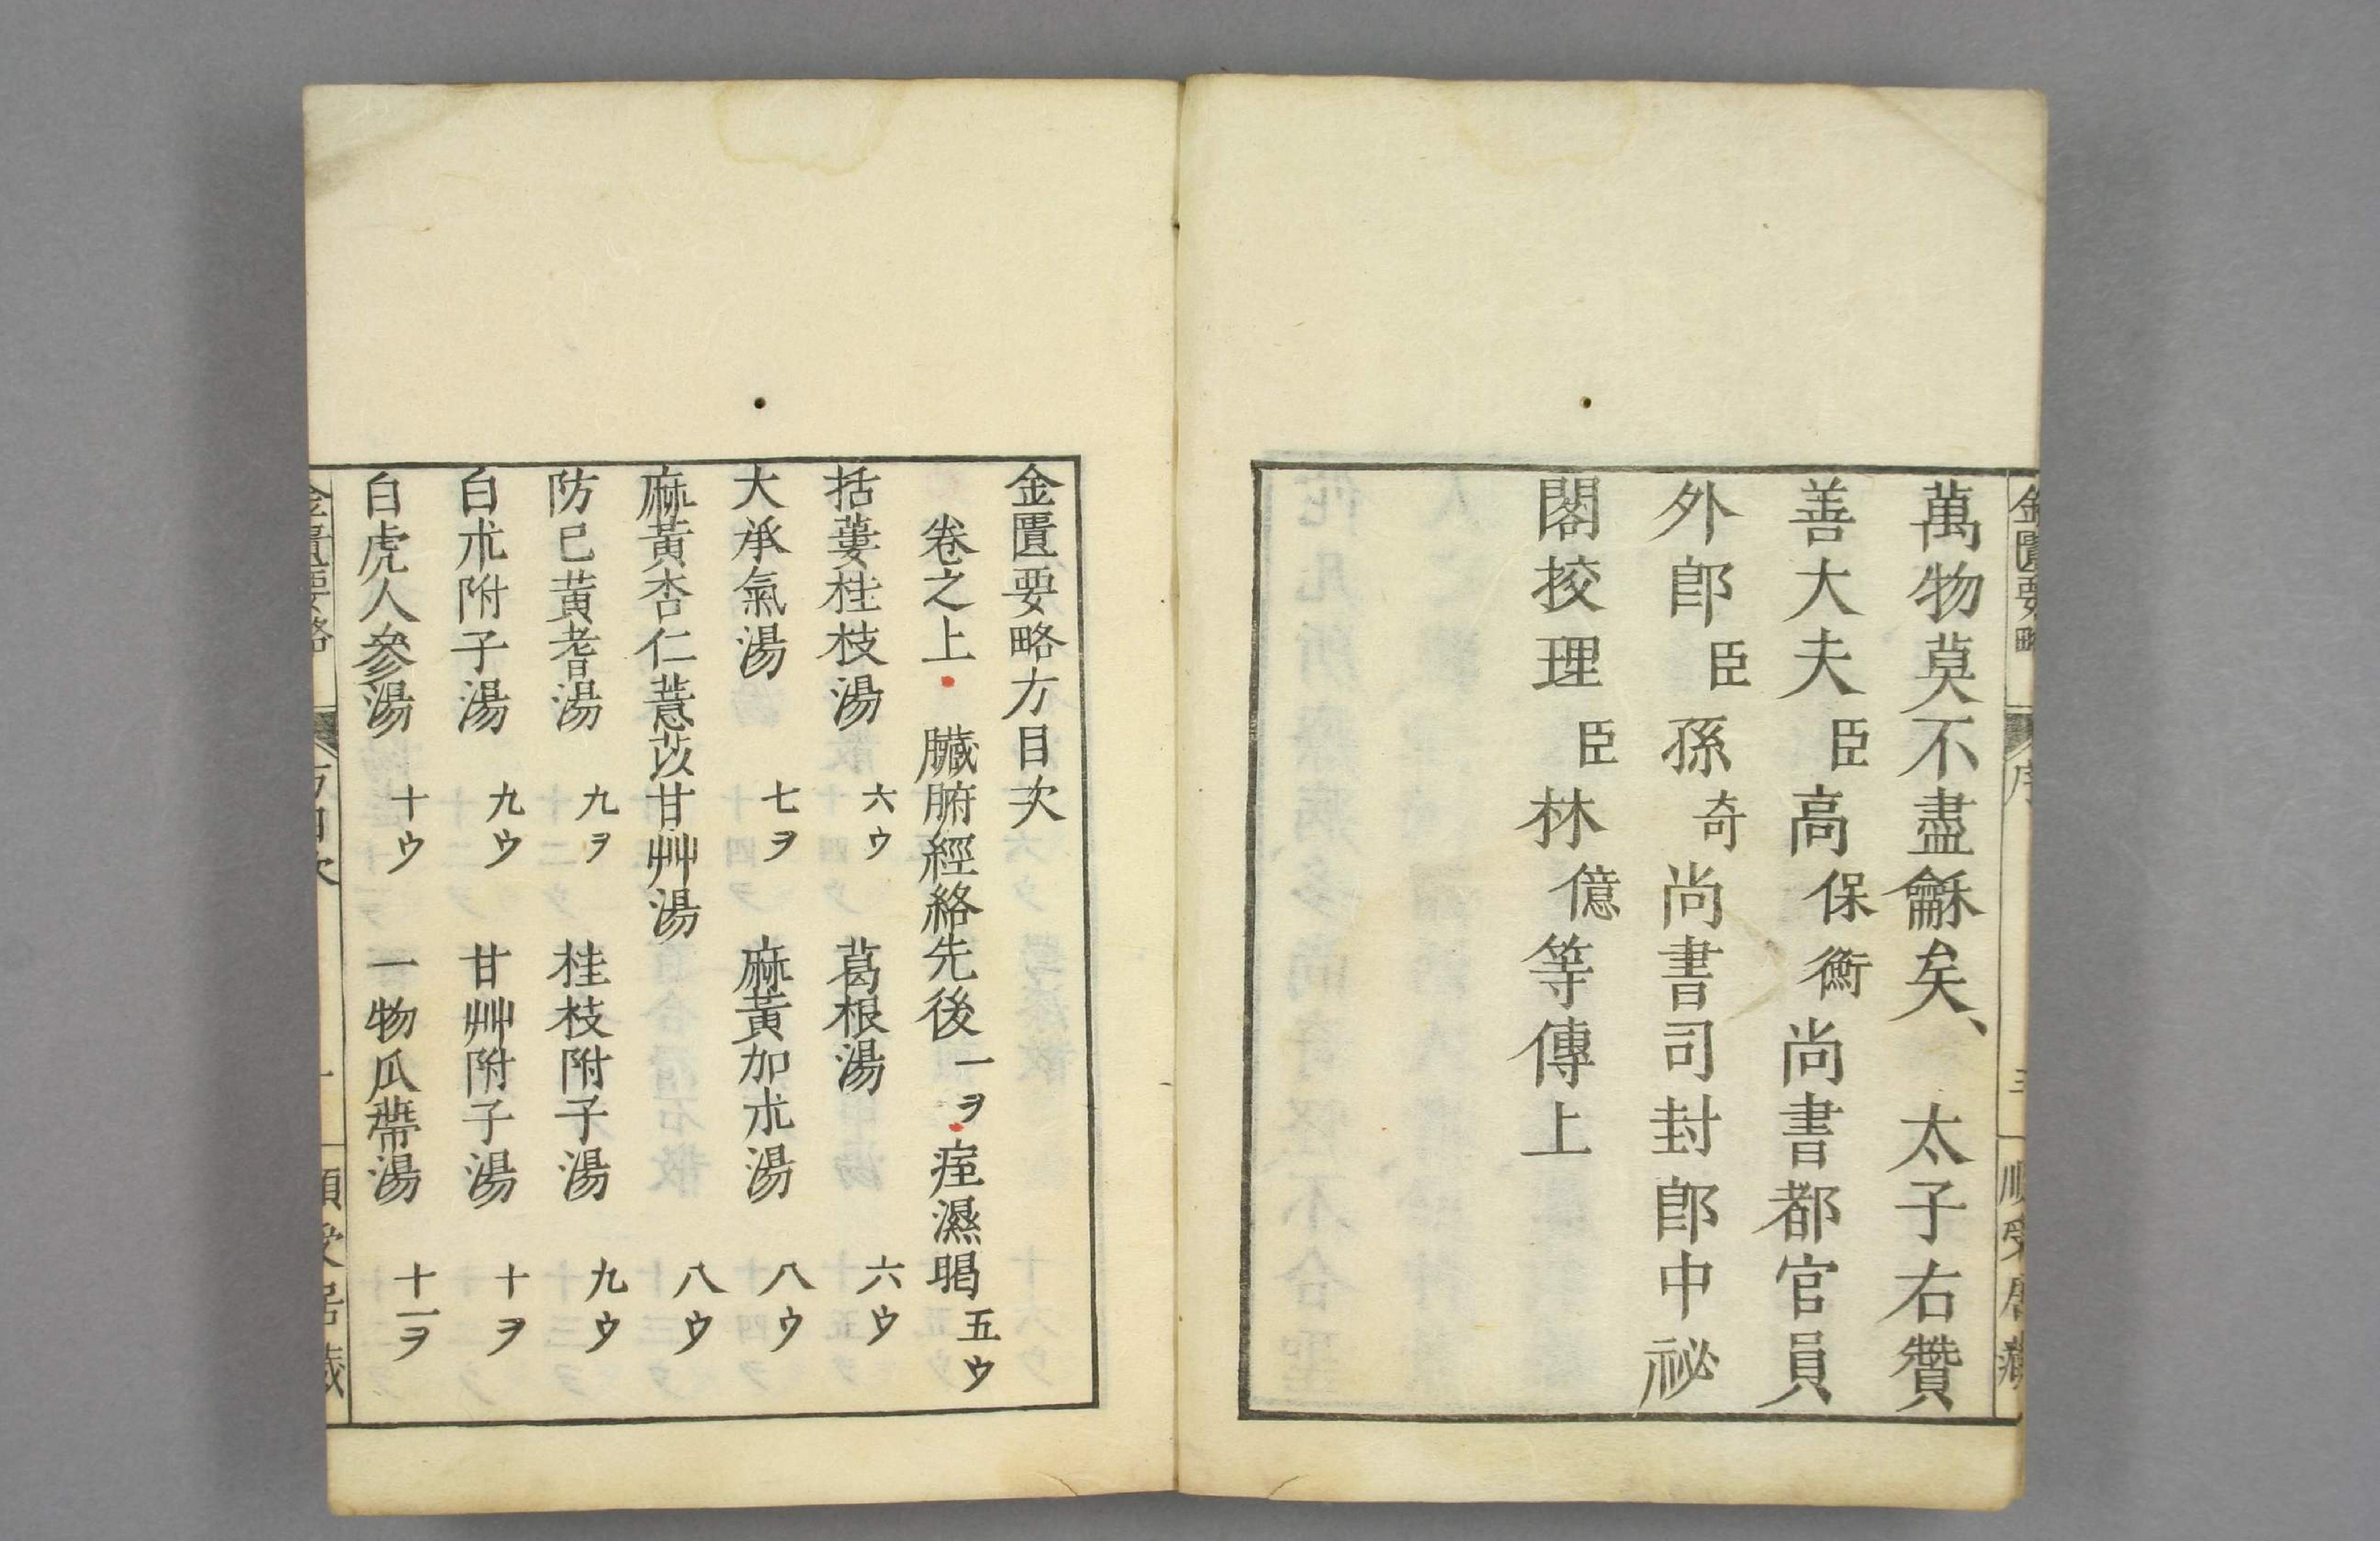 金匱要略
序
三
順受居藏
萬物莫不盡龢矣、太子右贊
善大夫臣高保衡尚書都官員
外郎臣孫奇尚書司封郎中祕
閣挍理臣林億等傳上
金匱要略方目次
卷之上 臟腑經絡先後一ヲ 痓濕暍五ウ
括蔞桂枝湯 六ウ 葛根湯 六ウ
大承氣湯 七ヲ 麻黃加朮湯 八ウ
麻黃杏仁薏苡甘艸湯 八ウ
防已黃耆湯 九ヲ 桂枝附子湯 九ウ
白朮附子湯 九ウ 甘艸附子湯 十ヲ
白虎人參湯 十ウ 一物瓜蔕湯 十一ヲ
金匱要略
方目次
一
順受居藏